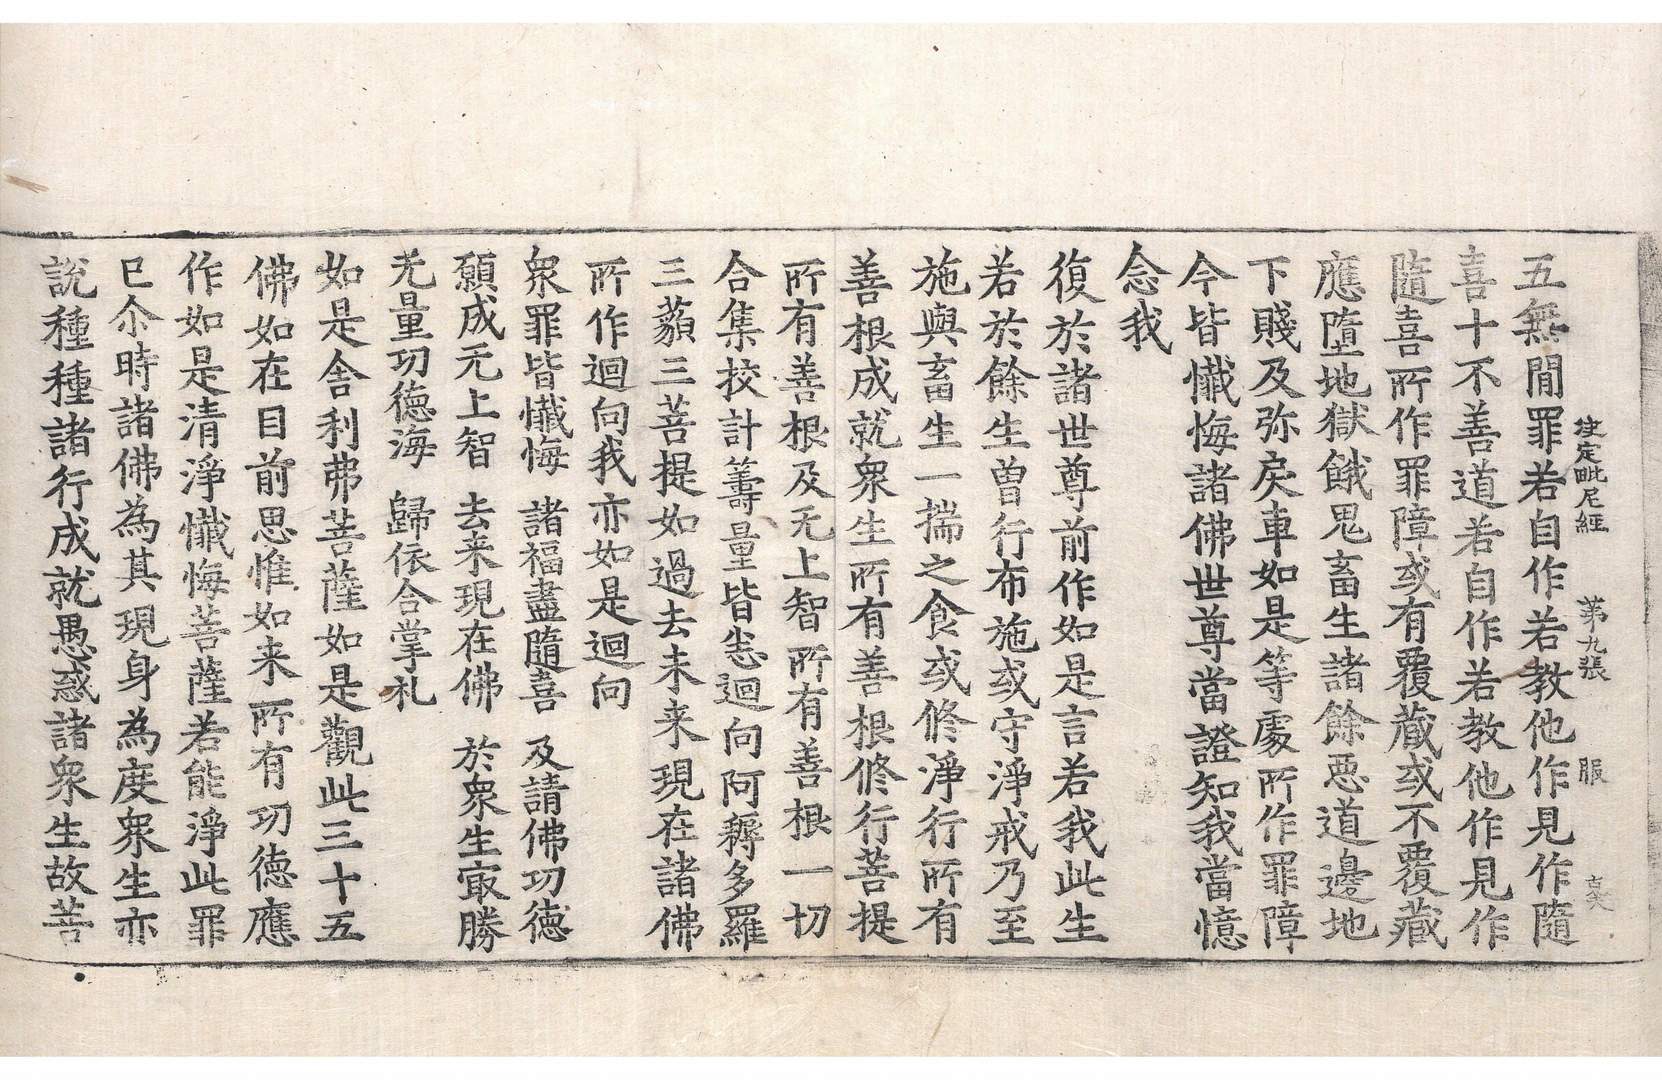 決定毗尼經 第九張 服
五無閒罪若自作若教他作見作隨
喜十不善道若自作若教他作見作
隨喜所作罪障或有覆藏或不覆藏
應墮地獄餓鬼畜生諸餘惡道邊地
下賤及弥戾車如是等處所作罪障
今皆懺悔諸佛世尊當證知我當憶
念我
復於諸世尊前作如是言若我此生
若於餘生曽行布施或守淨戒乃至
施與畜生一揣之食或修淨行所有
善根成就衆生所有善根修行菩提
所有善根及无上智所有善根一切
合集挍計籌量皆悉迴向阿耨多羅
三藐三菩提如過去未来現在諸佛
所作迴向我亦如是迴向
衆罪皆懺悔 諸福盡隨喜 及請佛功德
願成无上智 去来現在佛 於衆生㝡勝
无量功德海 歸依合掌礼
如是舎利弗菩薩如是觀此三十五
佛如在目前思惟如来所有功德應
作如是清淨懺悔菩薩若能淨此罪
已尒時諸佛為其現身為度衆生亦
說種種諸行成就愚惑諸衆生故菩